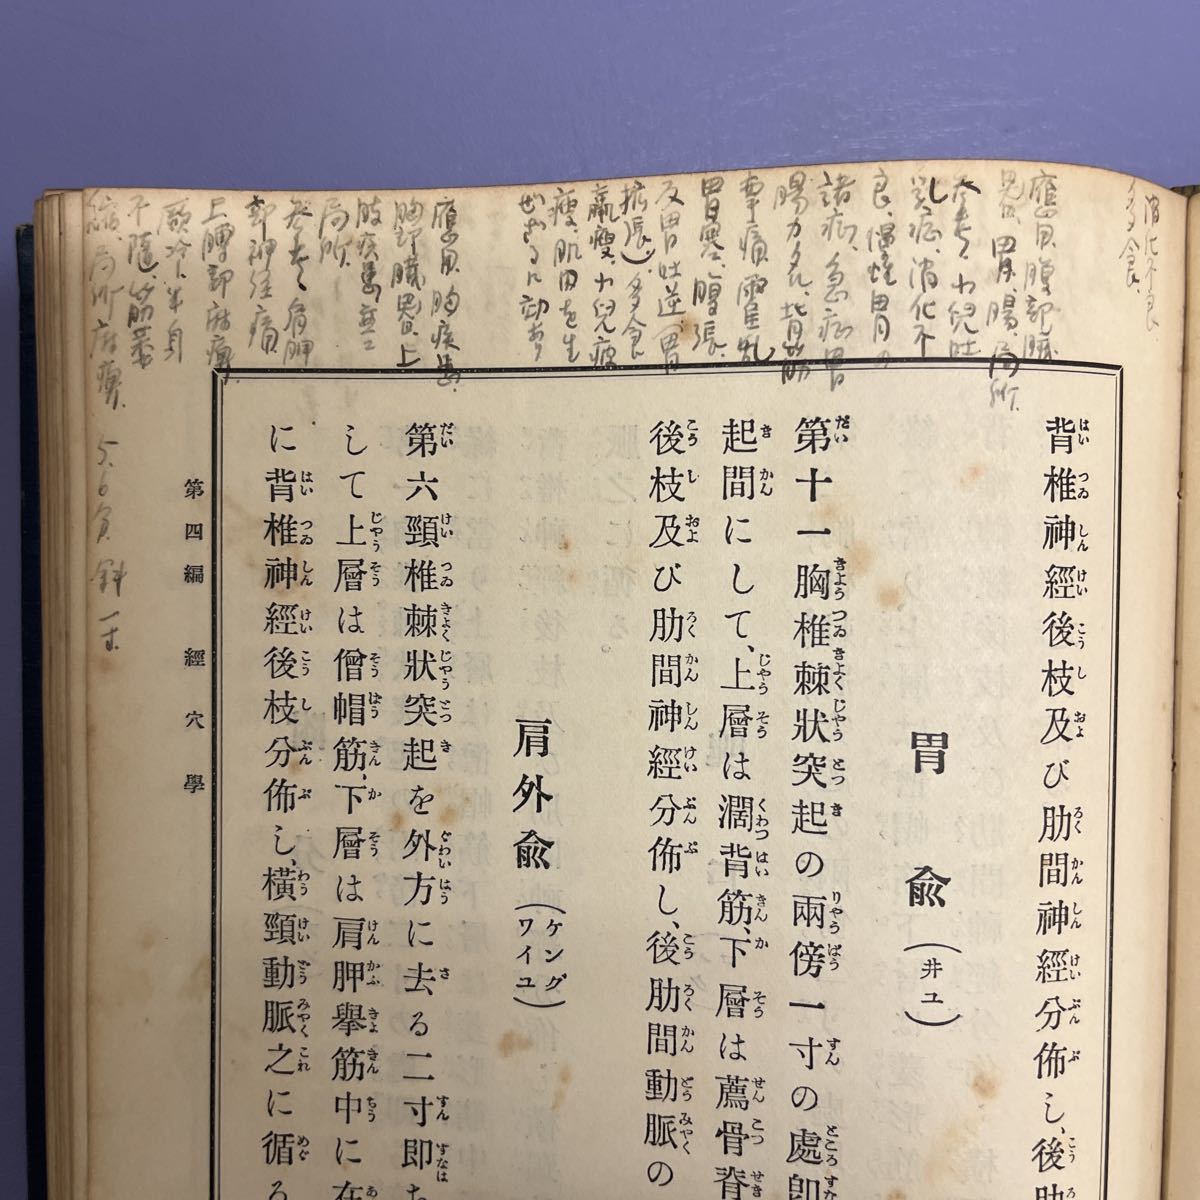 消化不良
多食、
應用、腹部臓
器、胃、腸、局所、
參考、小兒吐
乳症、消化不
良、慢性胃の
諸症、急
腸カタル、背筋
痛、霍乱
胃寒、腹張、
反胃吐逆、胃
拡張、多食
羸痩、小兒疲
痩、肌肉を生
せざるに効あり
應用、胸疾患、
胸部臓器、上
肢疾患並ニ
局所、
參考、肩胛
部神経痛、
上膊部麻痺、
厥冷、半身
不隨、筋萎
縮、局所麻痺、5.6分 斜 一寸
背椎神經後枝及び肋間神經分佈し、後肋
胃兪(井ユ)
第十一胸椎棘狀突起の兩傍一寸の處卽
起間にして、上層は濶背筋、下層は薦骨脊
後枝及び肋間神經分佈し、後肋間動脈の
肩外兪(ケングワイユ)
第六頸椎棘狀突起を外方に去る二寸卽ち
して上層は僧帽筋、下層は肩胛擧筋中に在
に背椎神經後枝分佈し、横頸動脈之に循る
第四編 經穴學